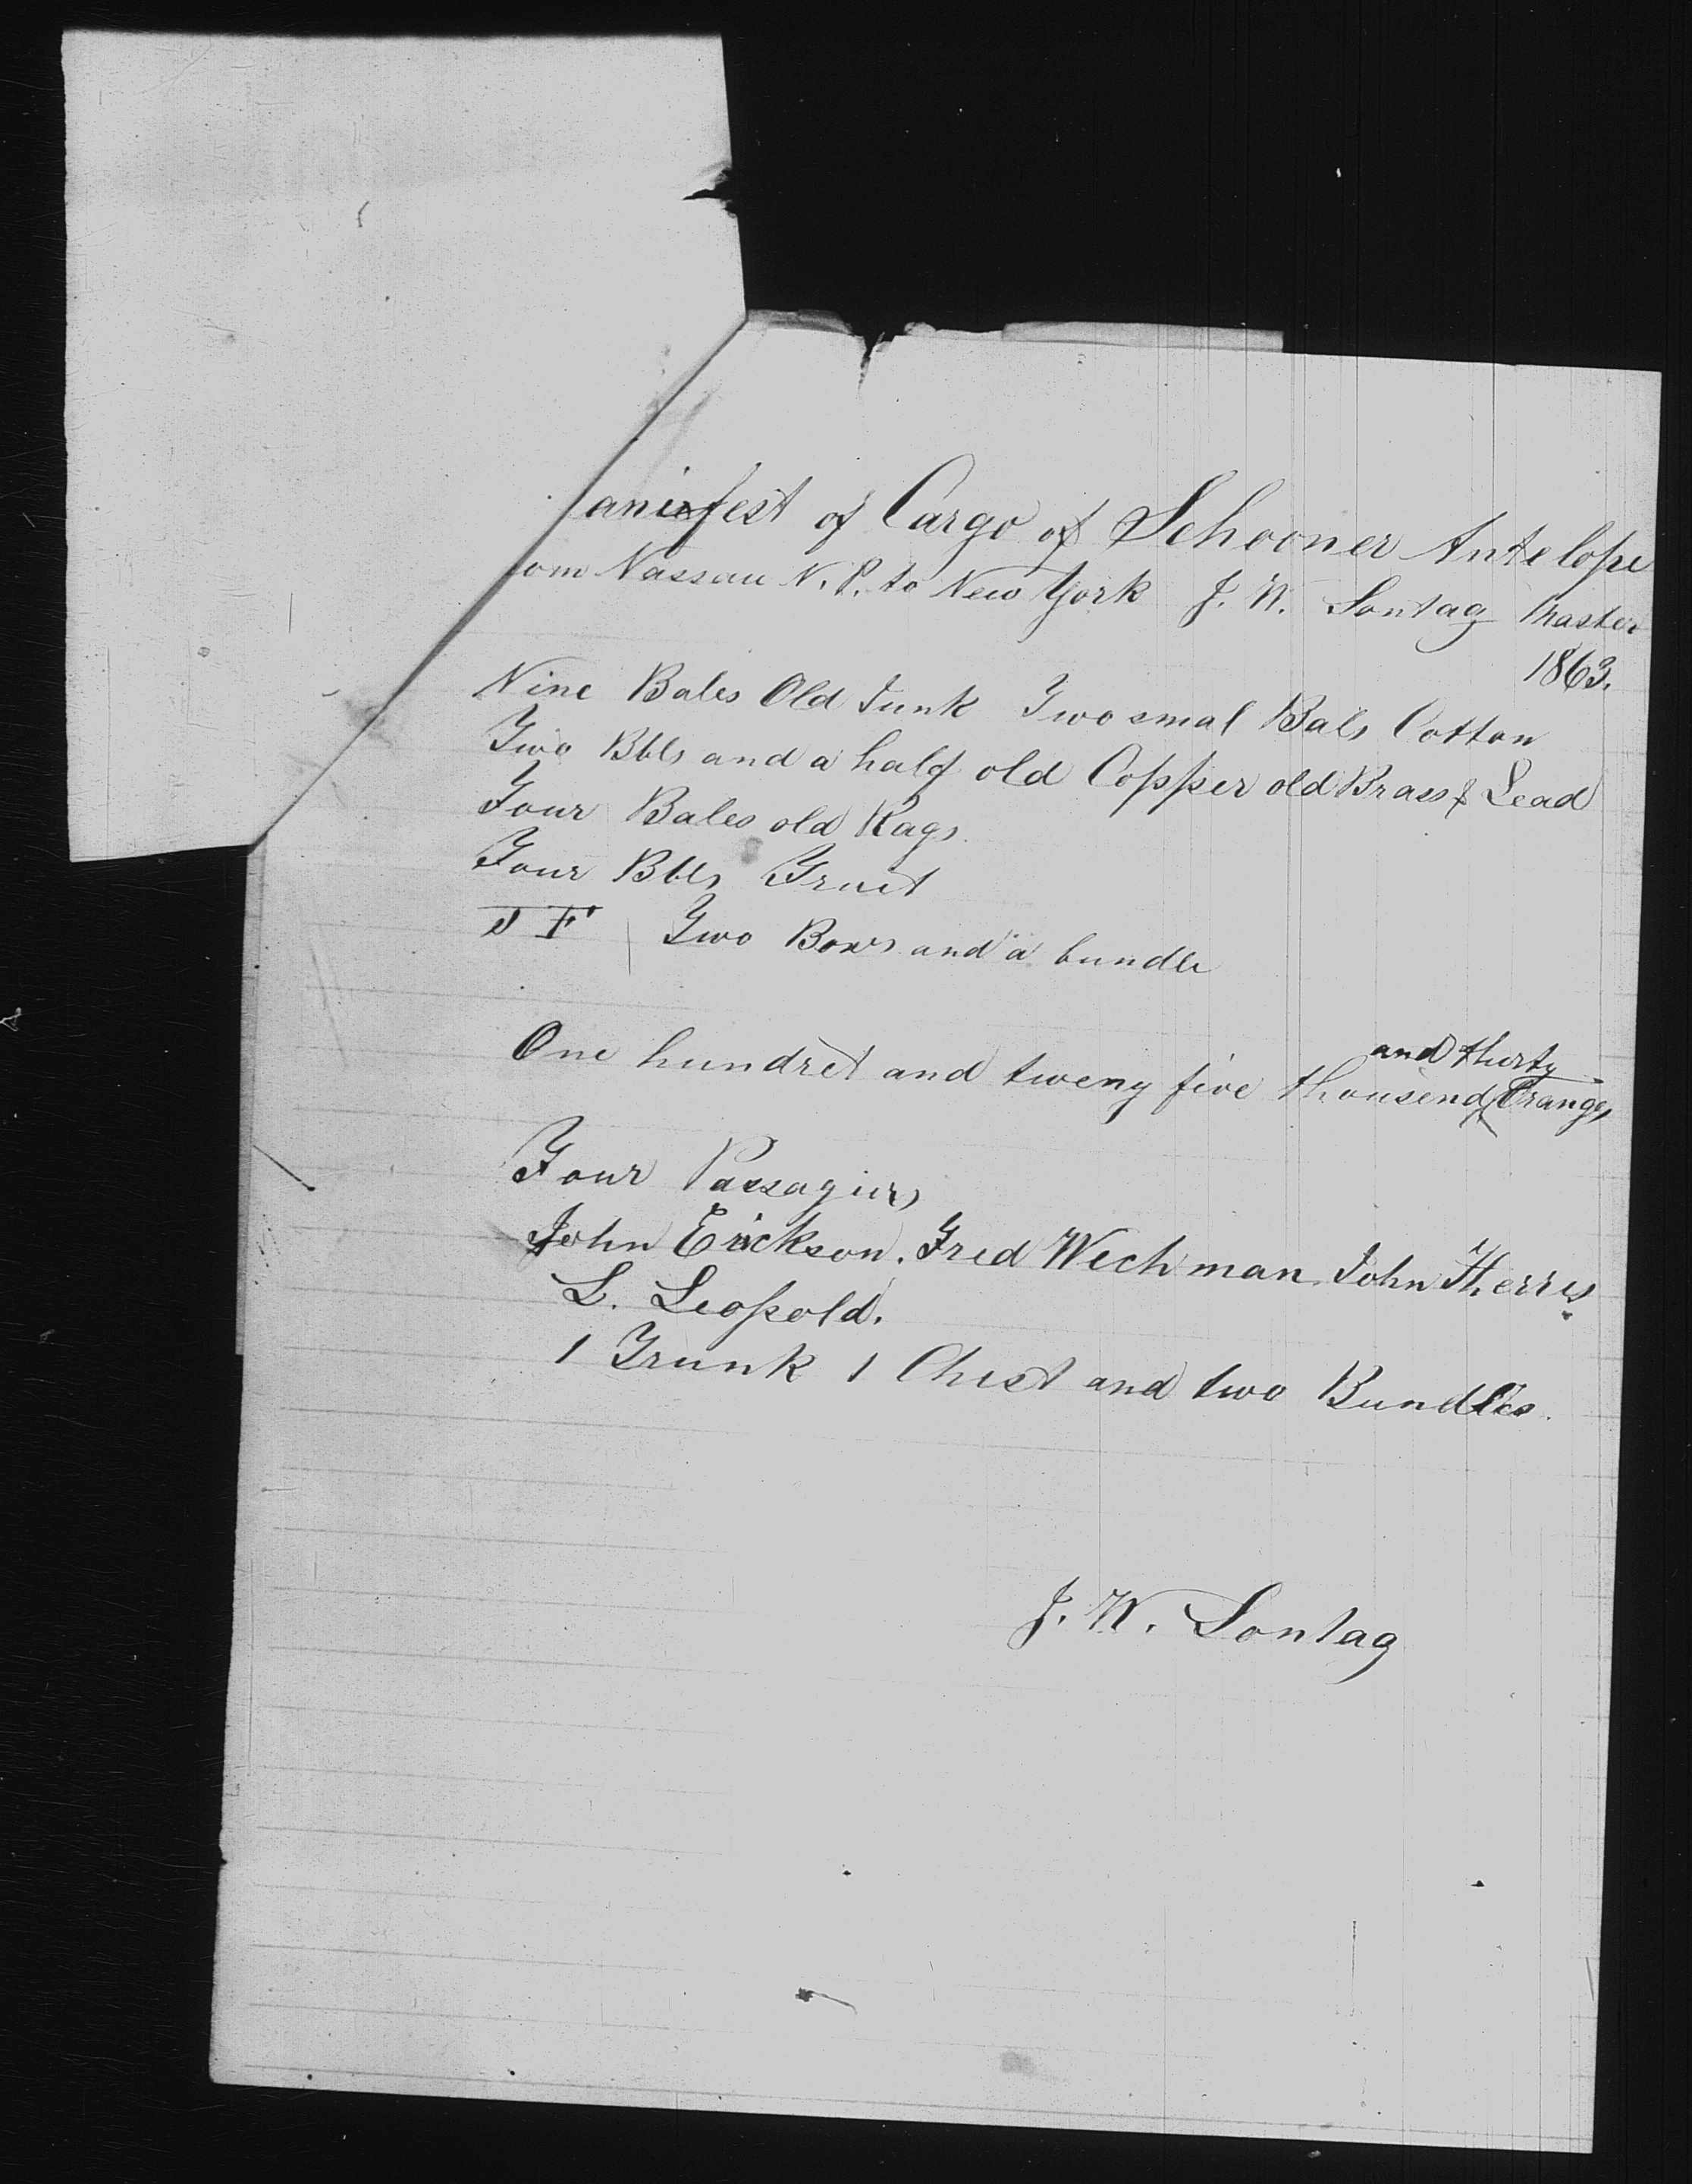 anifest of Cargo of Schooner Antelope
om Nassau N.P. to New York J. W. Sontag Master
1863.
Nine Bales Old Junk Two smal Bals Cotton
Two Bbls and a half old Copper old Brass & Lead
Four Bales old Rags.
Four Bbls Fruit
J F | Two Boxs and a bundle
and thirty
One hundret and tweny five thousend Oranges
Four Passagiers
John Erickson. Fred Wechman. John Herris
L. Leopold.
1 Trunk 1 Chest and two Bundles.
J. W. Sontag